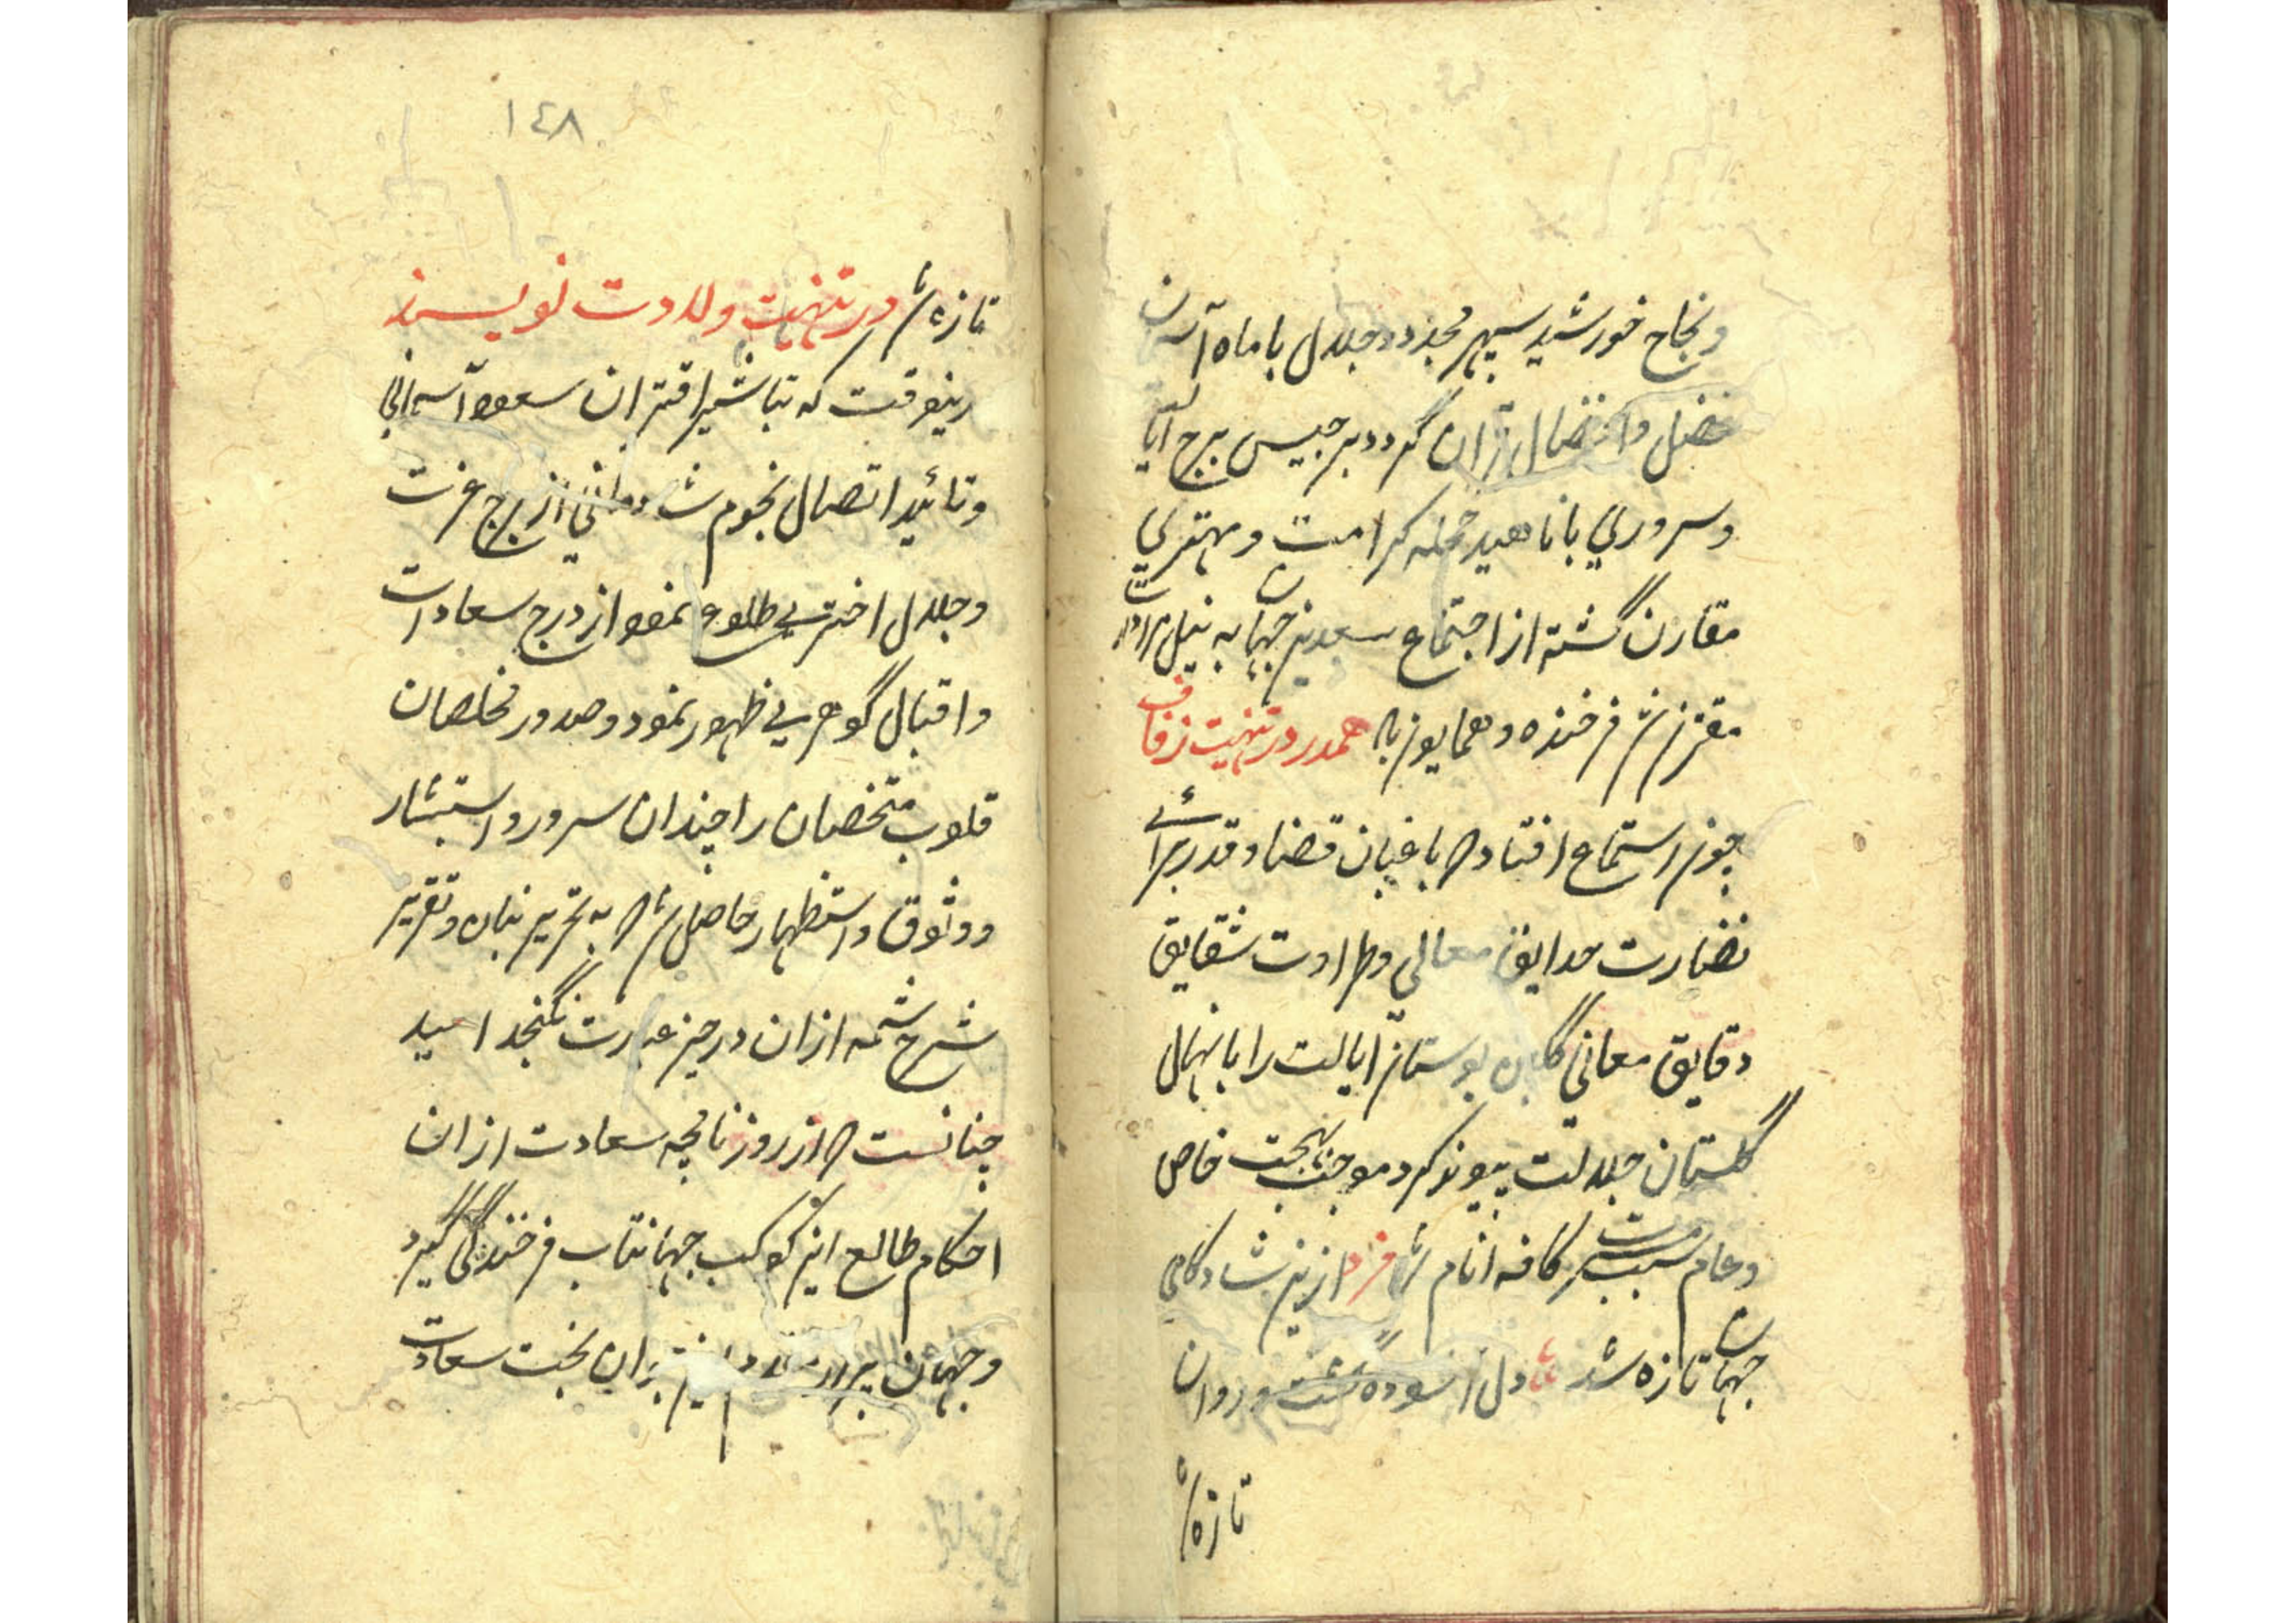 ونجاح خورشید سپهر مجد و جلال با ماه آسمان
فضل و افضال قران گردد برجیس برج ایالت
وسروری با ناهید حمله کرامت و مهتری
مقارن گشته از اجتماع سعدین جهان به نیل مرادات
مقترن شد فرخنده و همایون باد همدرد در تهنیت زفاف
چون استماع افتاد که باغبان قضا و قدر برای
نضارت حدایق معالی و طراوت شقایق
دقایق معانی گلبن بوستان ایالت را با نهال
گلستان جلالت پیوند کرد موجب بهجت خاص
وعام سبب مسرت کافه انام شد فرد ازین شادکامی
جهان تازه شد دل آسوده گشت و روان
تازه شد
١٤٨
تازه شد در تهنیت ولادت نویسند
درینوقت که تباشیر اقتران سعود آسمانی
وتائید اتصال نجوم شادمانی از برج عزت
وجلال اختری طلوع نمود از درج سعادات
واقبال گوهری ظهور نمود و صدور مخلصان
قلوب متخصصان را چندان سرور و استبشار
ووثوق و استظهار حاصل شد که به تحریر بنان و تقریر
شرح شمه ازان در حیز عبارت نگنجد امید
چنانست که از روزنامچه سعادت ازان
احکام طالع این کوکب جهانتاب فرخندگی گیرد
وجهان بران بخت سعادت